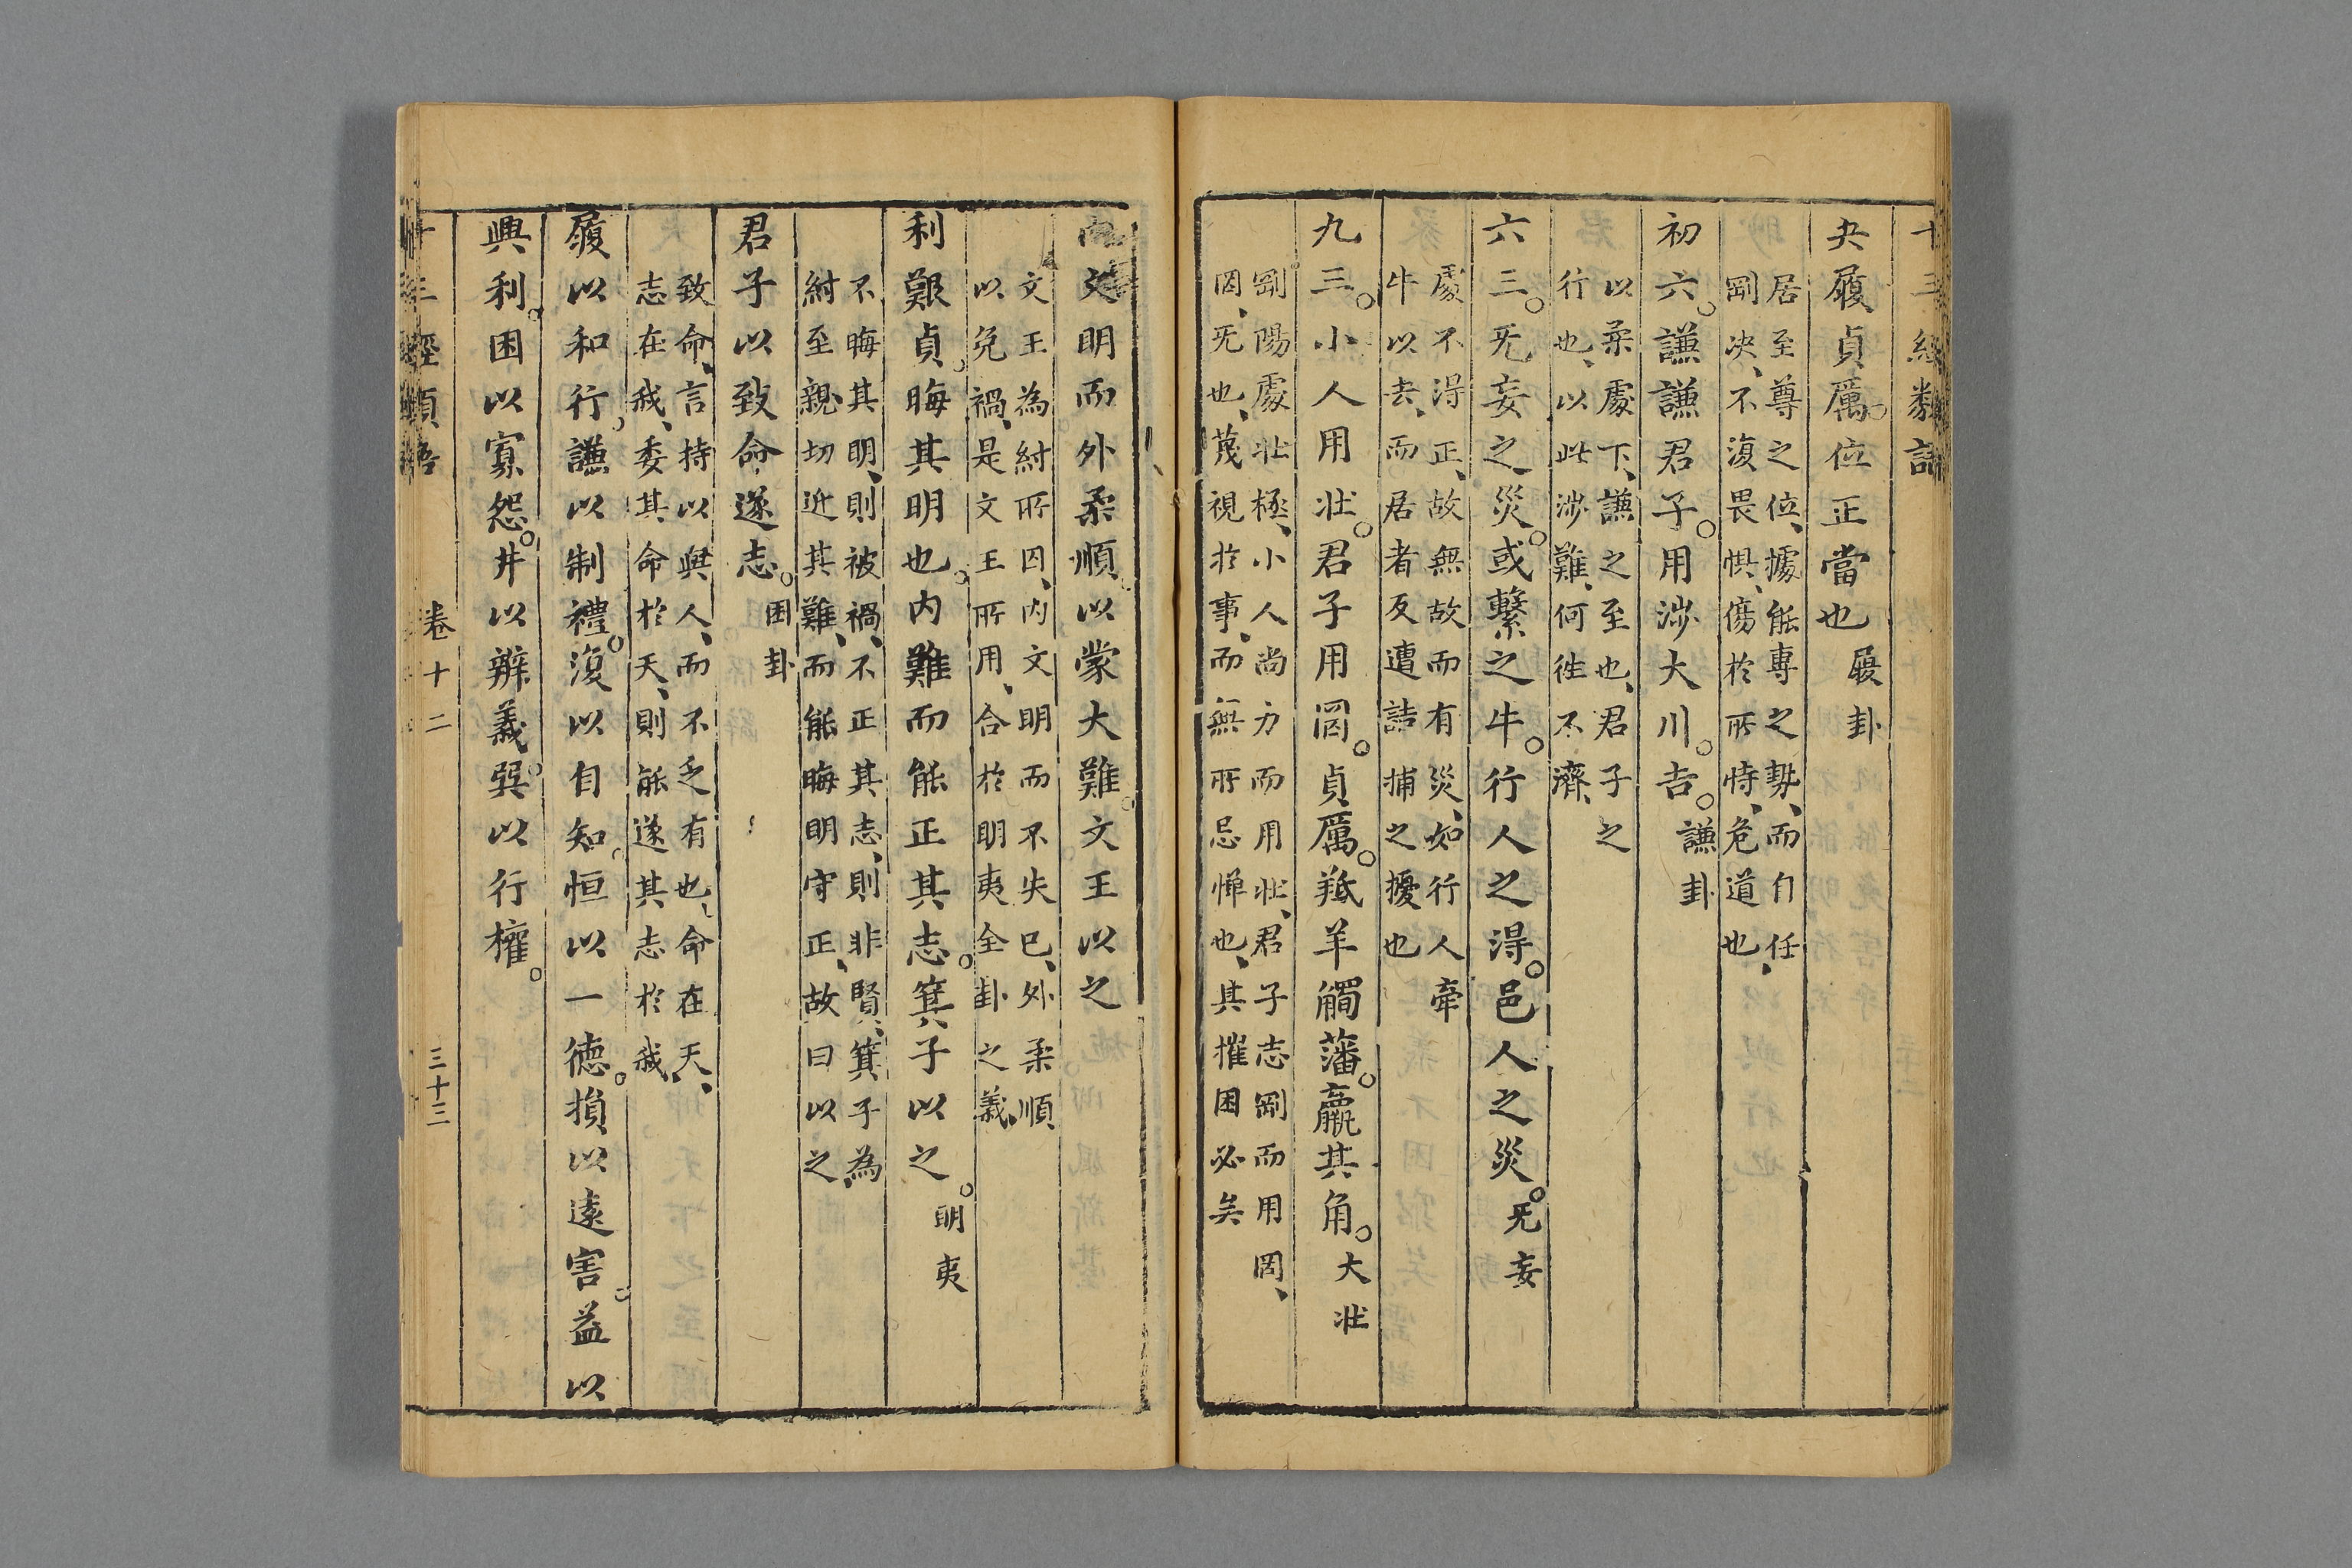 十三經類語
夬履貞厲。位正當也 履卦
居至尊之位、據能專之勢、而自任
剛决、不復畏惧、傷於所恃、危道也、
初六。謙謙君子。用涉大川。吉。謙卦
以柔處下、謙之至也、君子之
行也、以此涉難、何徃不濟、
六三。旡妄之災。或繫之牛。行人之得。邑人之災。旡妄
處不得正、故無故而有災、如行人牽
牛以去、而居者反遭詰捕之擾也
九三。小人用壯。君子用罔。貞厲。羝羊觸藩。羸其角。大壯
剛陽處壯極、小人尚力而用壯、君子志剛而用罔、
罔、旡也、蔑視於事、而無所忌憚也、其摧困必矣
内文明而外柔順。以蒙大難。文王以之
文王為紂所囚、内文明而不失已、外柔順
以免禍、是文王所用、合於明夷全卦之義、
利艱貞。晦其明也。内難而能正其志。箕子以之。明夷
不晦其明、則被禍、不正其志、則非賢、箕子為
紂至親切近其難、而能晦明守正、故曰以之、
君子以致命遂志。困卦
致命、言持以與人、而不乏有也、命在天、
志在我、委其命於天、則能遂其志於我、
履以和行。謙以制禮。復以自知。恒以一德。損以遠害。益以
興利。困以寡怨。井以辨義。巽以行權。
十三經類語 卷十二 三十三